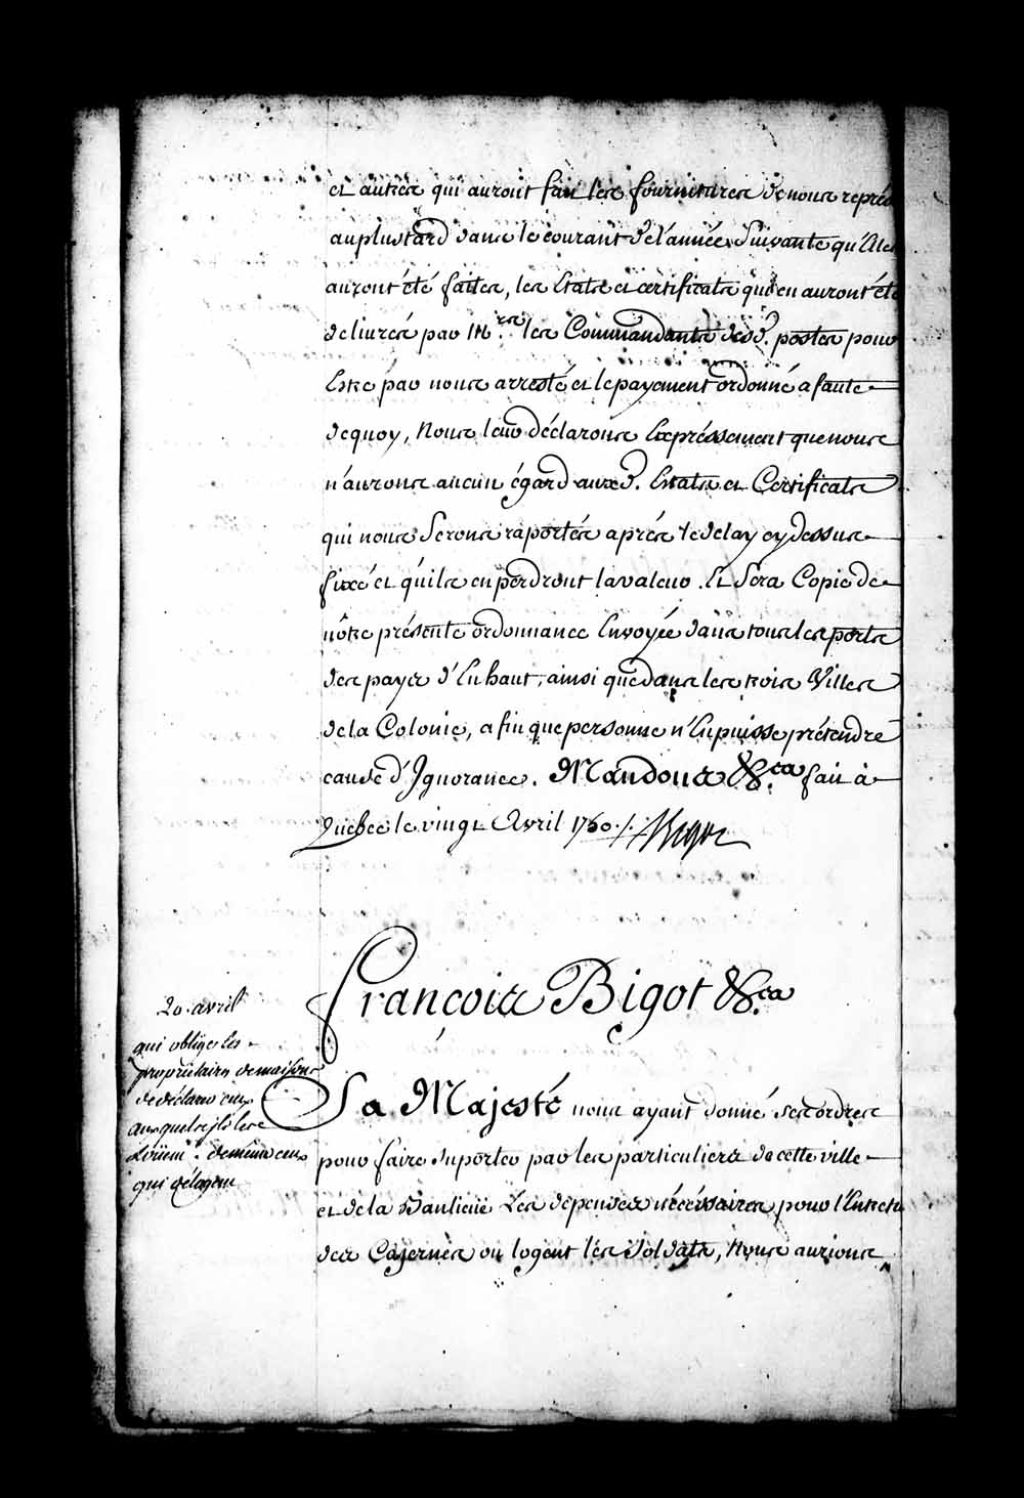 et autres qui auront fait les fournitures de nous repré
au plustard dans le courant de l'année Suivante qu'Elles
auront été faites, les Etats et certificats qui en auront été
delivrés par Mrs. les Commandants desd. postes pour
Estre par nous arresté et le payement ordonné a faute
dequoy, Nous leur déclarons Expréssement que nous
n'aurons aucun égard auxd. Etats et Certificats
qui nous Serons raportés aprés le delay cy dessus
fixé et qu'ils en perdront la valeur. Et Sera Copie de
nôtre présente ordonnance Envoyée dans tous les postes
des payes d'Enhaut, ainsi que dans les trois Villes
de la Colonie, afin que personne n'En puisse prétendre
cause d'Ignorance. Mandons &ca. fait à
Quebec le vingt Avril 1750 ./. Bigot
François Bigot &ca.
20. avril
qui oblige les
propriétaires de maisons
de déclarer ceux
auxquels ils les
de même ceux
qui délogent
Sa Majesté nous ayant donné ses ordres
pour faire suporter par les particuliers de cette ville
et de la Banlieüe Les dépenses nécéssaires pour l'Entret
des Casernes ou logent les Soldats, Nous aurions